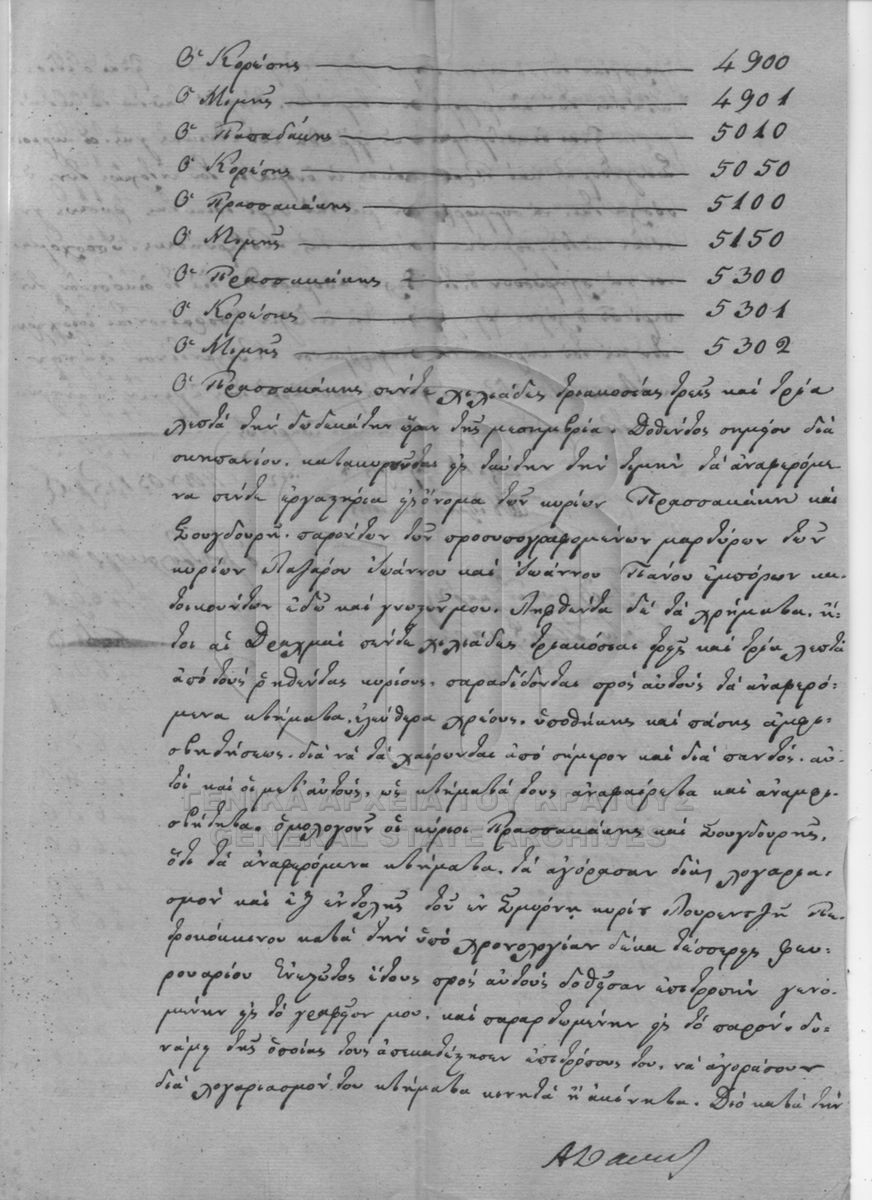 Ὁ Κορέσης 4900
Ὁ Μιμης 4901
Ὁ Παπαδάκης 5010
Ὁ Κορέσης 5050
Ὁ Πρασσακάκης 5100
Ὁ Μιμης 5150
Ὁ Πρασσακάκης 5300
Ὁ Κορέσης 5301
Ὁ Μιμης 5302
Ὁ Πρασσακάκης πέντε χιλιάδες τριακοσίας τρεῖς καὶ τρία
λεπτὰ τὴν δωδεκάτην ὥραν τῆς μεσημβρία. Δοθέντος σημείου διὰ
κατακυροῦνται εἰς ταύτην τὴν τιμὴν τὰ ἀναφερόμε
να πέντε ἐργαστήρια εἰς ὄνομα τῶν κυρίων Πρασσακάκη καὶ
Σουγδουρῆ. παρόντων τῶν προσυπογραφομένων μαρτύρων τῶν
κυρίων Λαζάρου Ἰωάννου καὶ Ἰωάννου Πάνου ἐμπόρων κα-
τοικούντων ἐδῶ καὶ γνωστῶν μου. Ληφθέντα δὲ τὰ χρήματα. ἤ-
τοι αἱ Δραχμαὶ πέντε χιλιάδες τριακόσιαι τρεῖς καὶ τρία λεπτὰ
ἀπὸ τοὺς ῥηθέντας κυρίους. παραδίδονται πρὸς αὐτοὺς τὰ ἀναφερό-
μενα κτήματα. ἐλεύθερα χρέους. ὑποθήκης καὶ πάσης ἀμφι-
σβητήσεως. διὰ νὰ τὰ χαίρωνται ἀπὸ σήμερον καὶ διὰ παντός. αὐ-
τοὶ καὶ οἱ μετ' αὐτούς. ὡς κτήματά τους ἀναφαίρετα καὶ ἀναμφι-
σβήτητα. ὁμολογοῦν οἱ κύριοι Πρασσακάκης καὶ Σουγδουρῆς.
ΓΕΝΙΚΑ ΑΡΧΕΙΑ ΤΟΥ ΚΡΑΤΟΥΣ
GENERAL STATE ARCHIVES
ὅτι τὰ ἀναφερόμενα κτήματα. τὰ ἀγόρασαν διὰ λογαρια-
σμὸν καὶ ἐξ ἐντολῆς τοῦ ἐν Σμύρνῃ κυρίου Λουρεντζῆ Πε-
τροκόκκινου κατὰ τὴν ὑπὸ χρονολογίαν δέκα τέσσερεις Φευ-
ρουαρίου ἐνεστῶτος ἔτους πρὸς αὐτοὺς δοθεῖσαν ἐπιτροπὴν γενο-
μένην εἰς τὸ γραφεῖον μου. καὶ παραρτωμένην εἰς τὸ παρόν. δυ-
νάμει τῆς ὁποίας τοὺς ἀπεκατέστησεν ἐπιτρόπους του. νὰ ἀγοράσουν
διὰ λογαριασμόν του κτήματα κινητὰ ἢ ἀκίνητα. Διὸ κατὰ τὴν